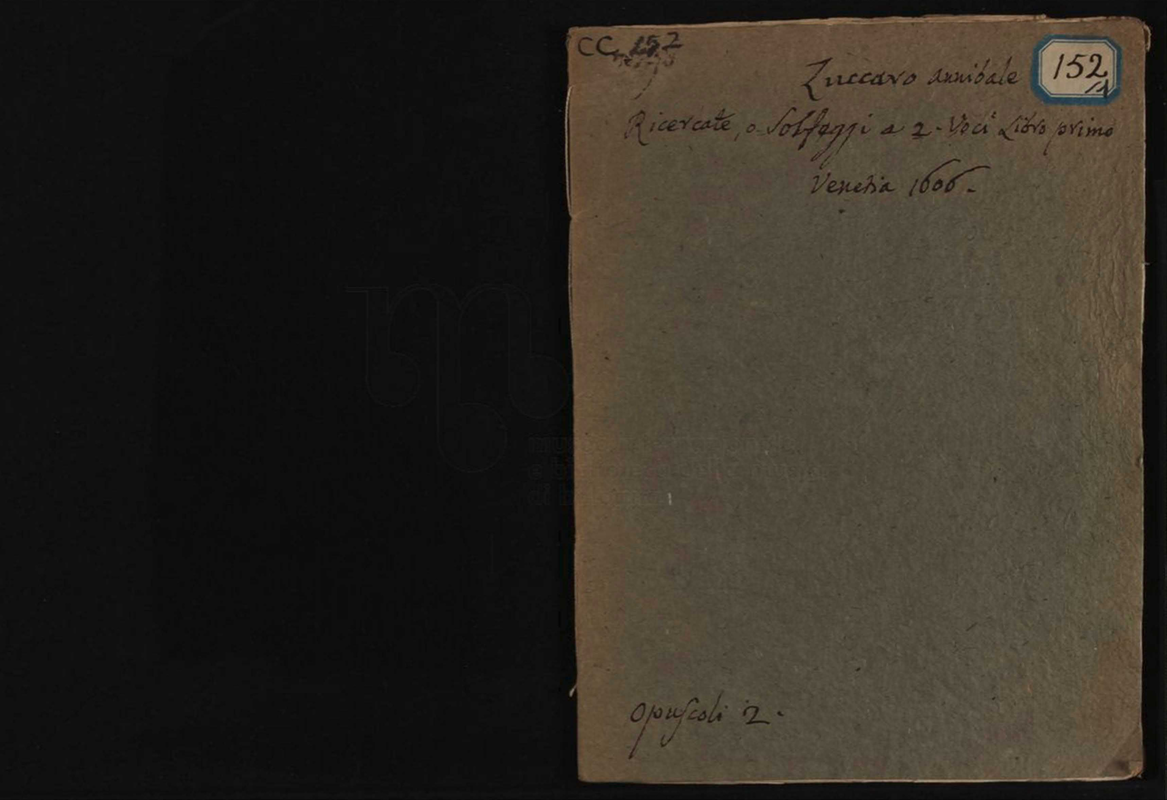 CC. 152
152
/1
Zuccaro annibale
Ricercate, o Solfeggi a 2. Voci Libro primo
Venetia 1606.
opuscoli 2.